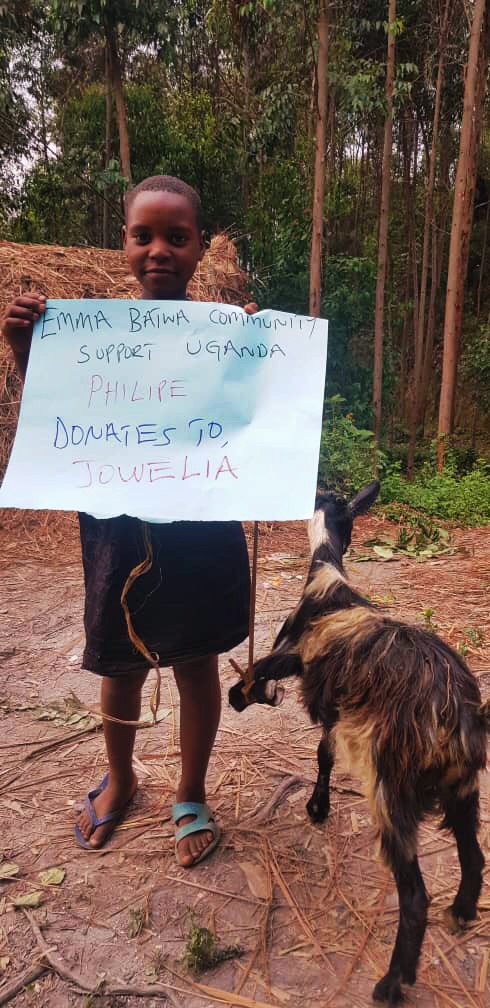 EMMA BATWA COMMUNITY
SUPPORT UGANDA
PHILIPE
DONATES TO,
JOWELIA